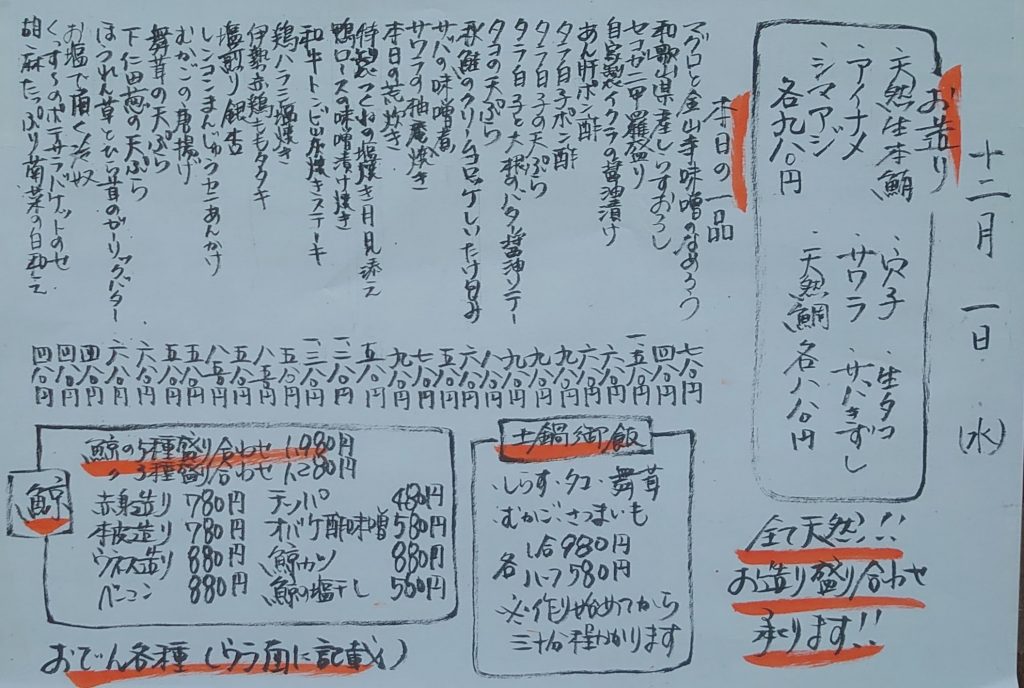 十二月 一日 (水)
お造り
・天然生本鮪
・アイナメ
・シマアジ
各九八〇円
・穴子 ・生タコ
・サワラ ・サバきずし
・天然鯛 各八八〇円
全て天然!!
お造り盛り合わせ
承ります!!
本日の一品
マグロと金山寺味噌のなめろう 七八〇円
和歌山県産しらすおろし 四八〇円
セコガニ甲羅盛り 一五八〇円
自家製イクラの醤油漬け 六八〇円
あん肝ポン酢 六八〇円
タラ白子ポン酢 九八〇円
タラ白子の天ぷら 九八〇円
タラ白子と大根のバター醤油ソテー 九八〇円
タコの天ぷら 八八〇円
秋鮭のクリームコロッケしいたけ包み 六八〇円
サバの味噌煮 五八〇円
サワラの柚庵焼き 七八〇円
本日の荒炊き 九八〇円
特製つくねの塩焼き月見添え 五八〇円
鴨ロースの味噌漬け焼き 一二八〇円
和牛トンビ炭焼きステーキ 一三八〇円
鶏ハラミ塩焼き 五八〇円
伊勢赤鶏ももタタキ 八五〇円
塩煎り銀杏 五八〇円
レンコンまんじゅうカニあんかけ 八五〇円
むかごの唐揚げ 五八〇円
舞茸の天ぷら 六八〇円
下仁田葱の天ぷら 六八〇円
ほうれん草とひら茸のガーリックバター 六八〇円
お塩で頂く冷奴 四八〇円
くずし豆のポテサラバケットのせ 四八〇円
胡麻たっぷり菊菜の白和え 四八〇円
土鍋御飯
・しらす・タコ・舞茸
・むかご・さつまいも
各 1合980円
ハーフ580円
※作り始めてから
三十分程かかります
鯨
鯨の5種盛り合わせ 1,980円
〃 3種盛り合わせ 1,280円
赤身造り 780円
本皮造り 780円
ウネス造り 880円
ベーコン 880円
テッパ 480円
オバケ酢味噌 580円
鯨カツ 880円
鯨の塩干し 580円
おでん各種(ウラ面に記載)